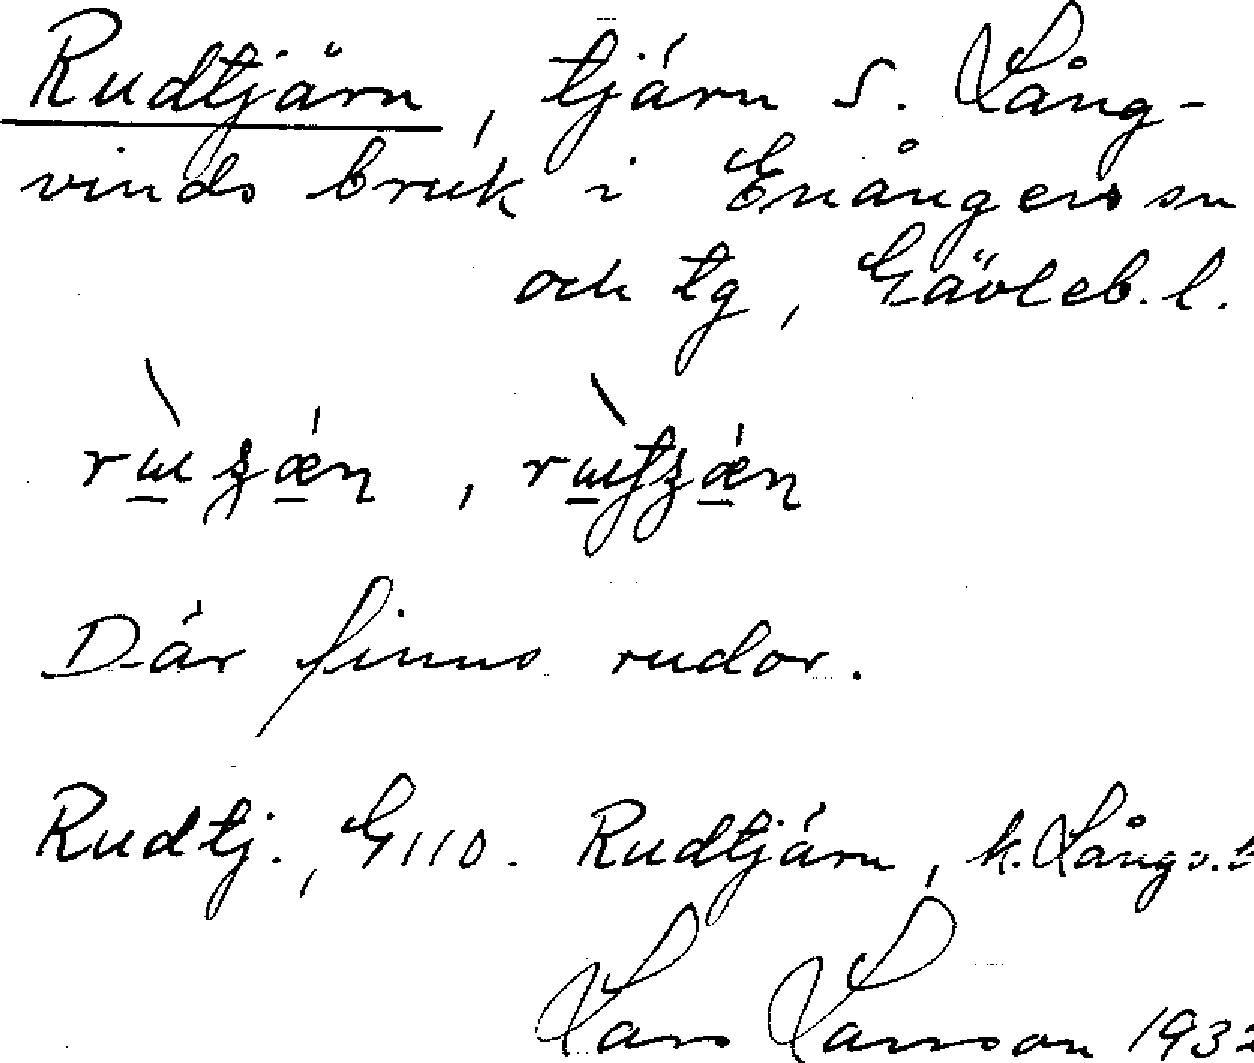 Rudtjärn, tjärn S. Lång-
vinds bruk i Enångers sn
och tg, Gävleb. l.
Där finns rudor.
Rudtj., G110. Rudtjärn, k. Långv.
Lars Larsson